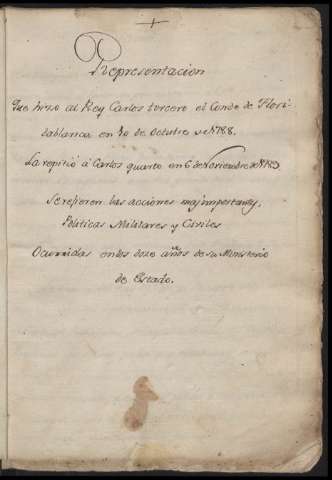 Representacion
Que hizo al Rey Carlos tercero el Conde de Flori-
dablanca en 10 de Octubre de 1788.
La repitió á Carlos quarto en 6 de Noviembre de 1789
Se refieren las acciones mas importantes,
Politicas Militares y Civiles
Ocurridas en los doze años de su Ministerio
de Estado.